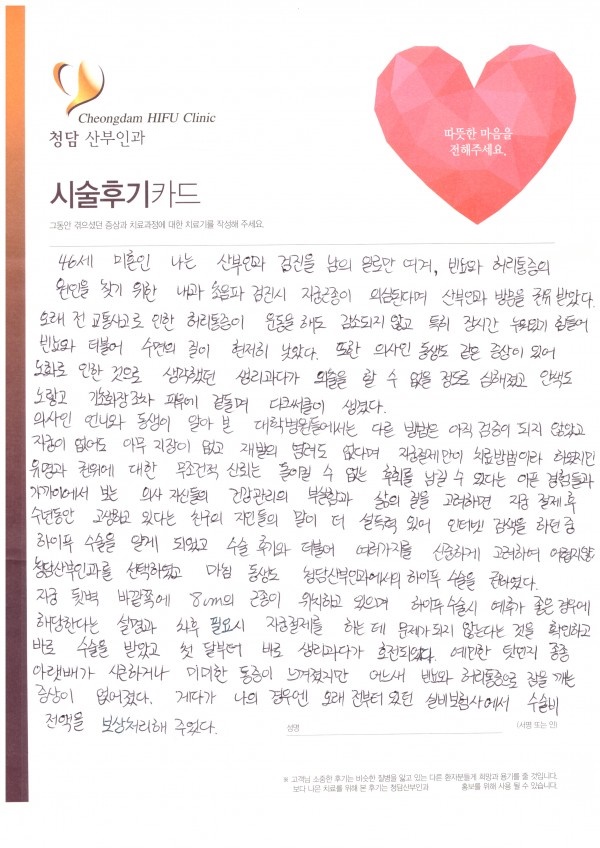 Cheongdam HIFU Clinic
청담 산부인과
따뜻한 마음을
전해주세요.
시술후기카드
그동안 겪으셨던 증상과 치료과정에 대한 치료기를 작성해 주세요.
46세 미혼인 나는 산부인과 검진을 남의 일로만 여겨, 빈뇨와 허리통증의
원인을 찾기 위한 내과 초음파 검진시 자궁근종이 의심된다며 산부인과 방문을 권유 받았다.
오래 전 교통사고로 인한 허리통증이 운동을 해도 감소되지 않고 특히 장시간 누워있기 힘들어
빈뇨와 더불어 수면의 질이 현저히 낮았다. 또한 의사인 동생도 같은 증상이 있어
노화로 인한 것으로 생각했던 생리과다가 외출을 할 수 없을 정도로 심해졌고 안색도
노랗고 기초화장조차 피부에 겉돌며 다크써클이 생겼다.
의사인 언니와 동생이 알아 본 대학병원들에서는 다른 방법은 아직 검증이 되지 않았고
자궁이 없어도 아무 지장이 없고 재발의 염려도 없다며 자궁절제만이 치료방법이라 하였지만
유명과 권위에 대한 무조건적 신뢰는 돌이킬 수 없는 후회를 남길 수 있다는 아픈 경험들과
가까이에서 보는 의사 자신들의 건강관리의 부실함과 삶의 질을 고려하면 자궁 절제 후
수년동안 고생하고 있다는 친구의 지인들의 말이 더 설득력 있어 인터넷 검색을 하던 중
하이푸 수술을 알게 되었고 수술 후기와 더불어 여러가지를 신중하게 고려하여 어렵지않게
청담산부인과를 선택하였고 마침 동생도 청담산부인과에서의 하이푸 수술을 권하였다.
자궁 뒷벽 바깥쪽에 8cm의 근종이 위치하고 있으며 하이푸수술시 예후가 좋은 경우에
해당한다는 설명과 차후 필요시 자궁절제를 하는 데 문제가 되지 않는다는 것을 확인하고
바로 수술을 받았고 첫 달부터 바로 생리과다가 호전되었다. 예민한 탓인지 종종
아랫배가 시큰하거나 미미한 통증이 느껴졌지만 어느새 빈뇨와 허리통증으로 잠을 깨는
증상이 없어졌다. 게다가 나의 경우엔 오래 전부터 있던 실비보험사에서 수술비
전액을 보상처리해 주었다.
성명 (서명 또는 인)
※ 고객님 소중한 후기는 비슷한 질병을 앓고 있는 다른 환자분들게 희망과 용기를 줄 것입니다.
보다 나은 치료를 위해 본 후기는 청담산부인과 홍보를 위해 사용 될 수 있습니다.